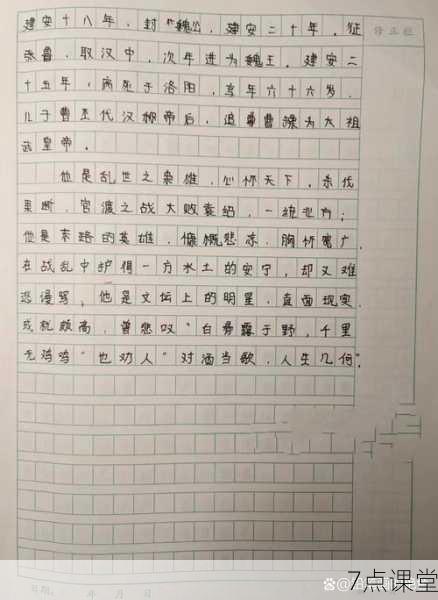 建安十八年，封"魏公，建安二十年，征
张鲁，取汉中，次年进为魏王。建安二
十五年，病死于洛阳，享年六十六岁，
儿子曹丕代汉称帝后，追尊曹操为太祖
武皇帝。
他是乱世之枭雄，心怀天下，杀伐
果断，官渡之战大败袁绍，一统北方；
他是末路的英雄，慷慨悲凉，胸怀宽广，
在战乱中护得一方水土的安宁，却又难
逃漫骂，他是文坛上的明星，直面现实，
成就颇高，曾悲叹"白骨露于野，千里
无鸡鸣"也劝人"对酒当歌，人生几何"。
修正栏
日期： 年 月 日
7点课堂